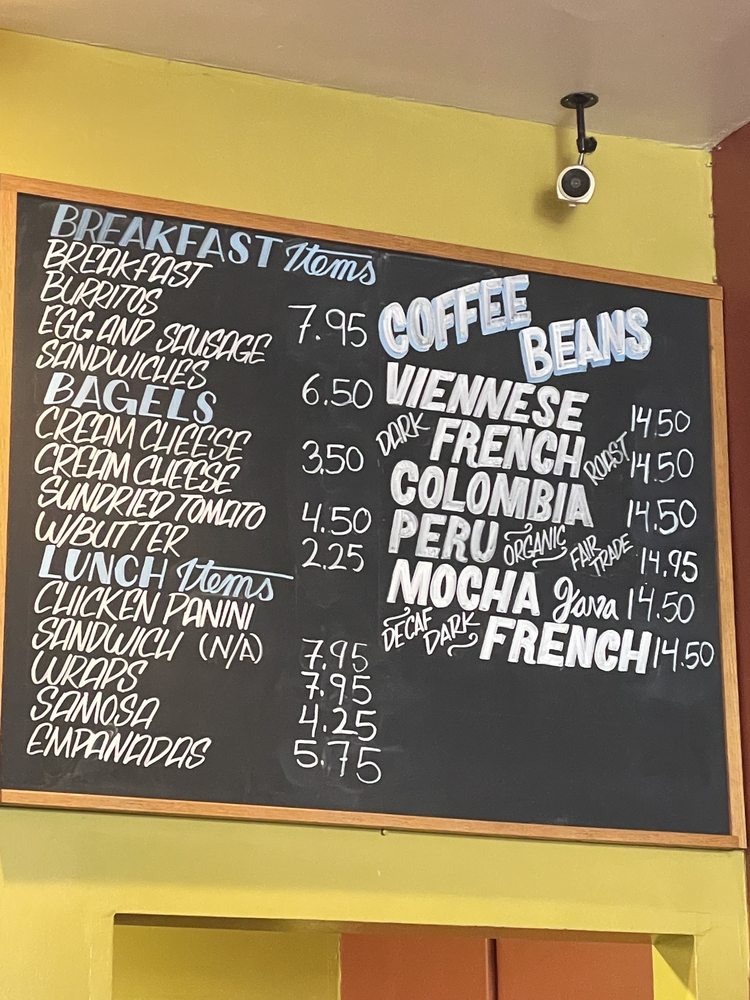 BREAKFAST Items
BREAKFAST
BURRITOS 7.95
EGG AND SAUSAGE
SANDWICHES 6.50
BAGELS
CREAM CHEESE 3.50
CREAM CHEESE
SUNDRIED TOMATO 4.50
W/BUTTER 2.25
LUNCH Items
CHICKEN PANINI
SANDWICH (N/A) 7.95
WRAPS 7.95
SAMOSA 4.25
EMPANADAS 5.75
COFFEE
BEANS
VIENNESE 14.50
DARK FRENCH ROAST 14.50
COLOMBIA 14.50
PERU ORGANIC FAIR TRADE 14.95
MOCHA Java 14.50
DECAF DARK FRENCH 14.50